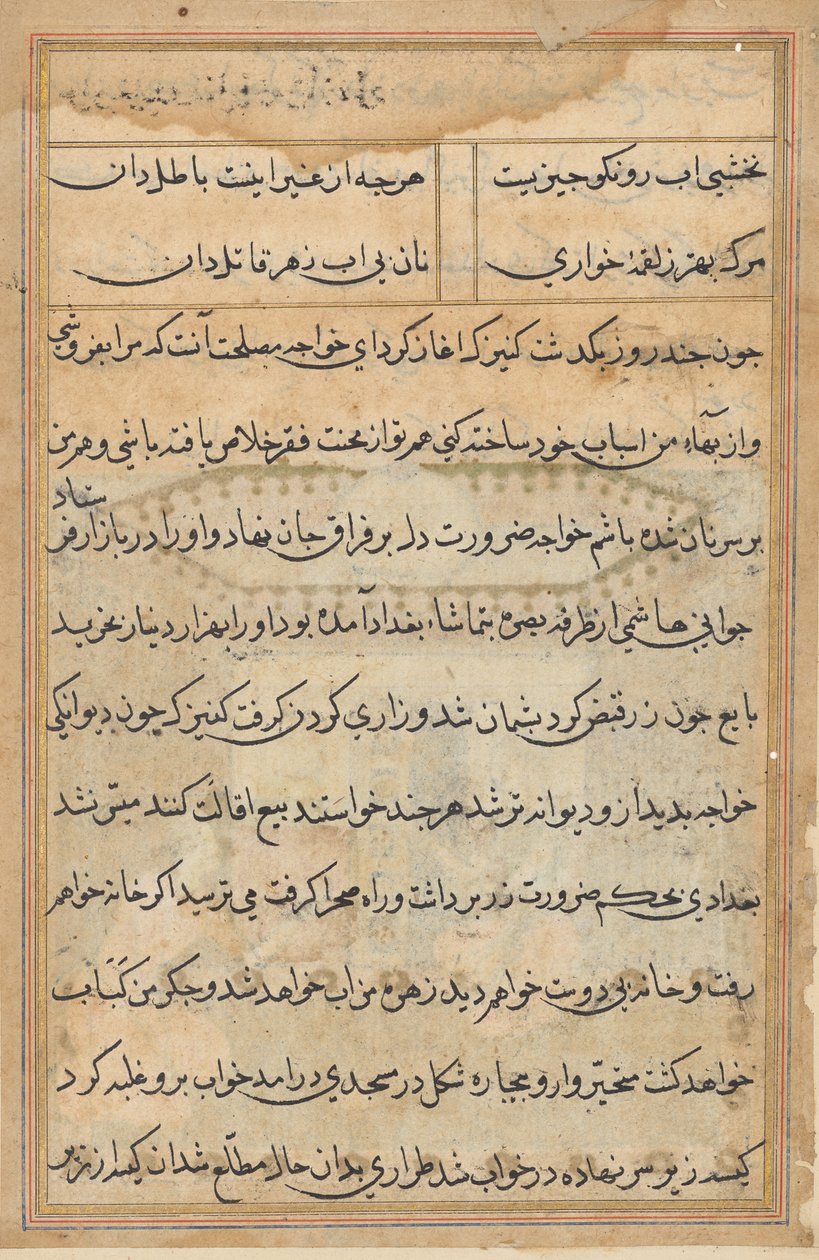 نخشبی اب رو نکو جیزیست هرجه از غیر اینست باطل دان
مرک بهتر ز لقمهٔ خواری نان بی اب زهر قاتل دان
جون جند روز بکدشت کنیزک اغاز کرد ای خواجه مصلحت آنست که مرا بفروشی
و از بهاء من اسباب خود ساخته کنی هم تو از محنت فقر خلاص یافته باشی و هم من
بر سر نان شده باشم خواجه ضرورت دل بر فراق جان نهاد و او را در بازار فرستاد
جوانی هاشمی از طرف بصره بتماشاء بغداد آمده بود او را بهزار دینار بخرید
بایع جون زر قبض کرد بشمان شد و زاری کردن کرفت کنیزک جون دیوانکی
خواجه بدید ازو دیوانه تر شد هر جند خواستند بیع اقالت کنند میسّر نشد
بغدادی بحکم ضرورت زر برداشت و راه صحرا کرفت می ترسید اکر خانه خواهم
رفت و خانه بی دوست خواهم دید زهره من اب خواهد شد و جکر من کباب
خواهد کشت متحیّروار و بیجاره شکل در مسجدی درامد خواب برو غلبه کرد
کیسه زیر سر نهاده در خواب شد طراری بدان حال مطلّع شد ان کیسه از زیر